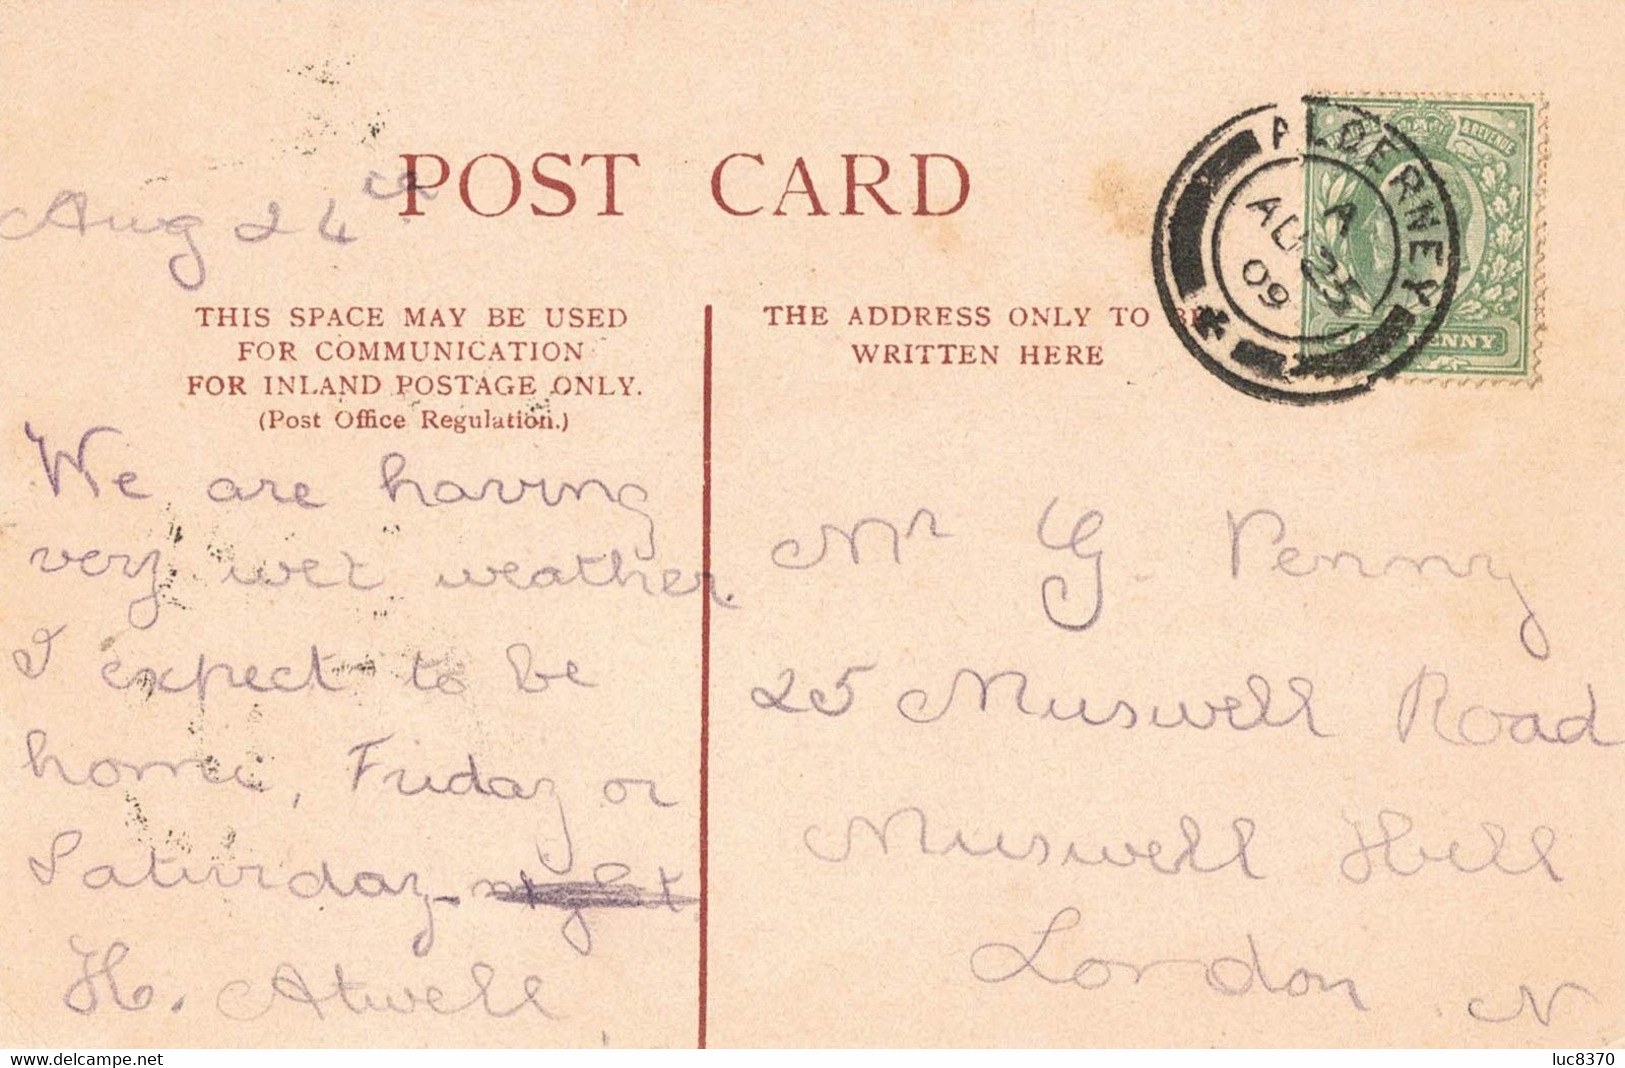 POST CARD
Aug 24th
THIS SPACE MAY BE USED
FOR COMMUNICATION
FOR INLAND POSTAGE ONLY.
(Post Office Regulation.)
We are having
very wet weather.
I expect to be
home, Friday or
Saturday
H. Atwell
THE ADDRESS ONLY TO BE
WRITTEN HERE
ALDERNEY
A
AU 25
09
& REVENUE
HALFPENNY
Mr G. Penny
25 Muswell Road
Muswell Hill
London. N
www.delcampe.net
luc8370